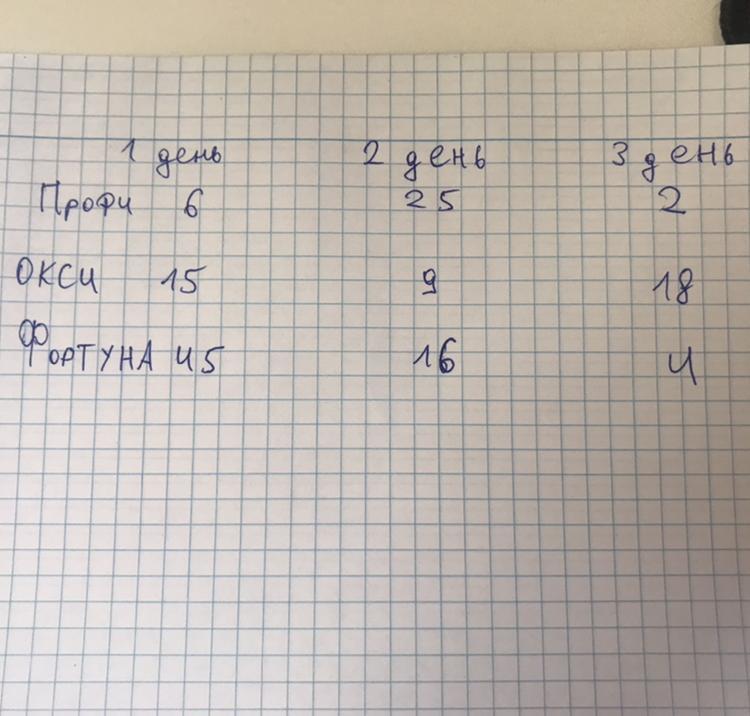 1 день 2 день 3 день
Профи 6 25 2
ОКСИ 15 9 18
ФОРТУНА 45 16 4